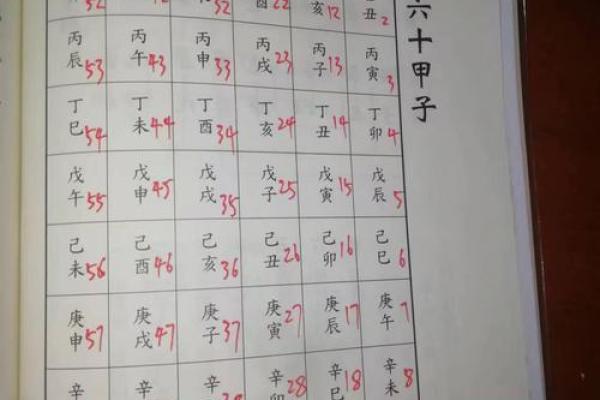 六十甲子
丑 2
丙寅 3
丁卯 4
戊辰 5
己巳 6
庚午 7
辛未 8
亥 12
丙子 13
丁丑 14
戊寅 15
己卯 16
庚辰 17
辛巳 18
酉 22
丙戌 23
丁亥 24
戊子 25
己丑 26
庚寅 27
辛 28
32
丙申 33
丁酉 34
戊戌 35
己亥 36
庚子 37
辛
42
丙午 43
丁未 44
戊申 45
己酉 46
庚戌 47
辛
52
丙辰 53
丁巳 54
戊午 55
己未 56
庚申 57
辛